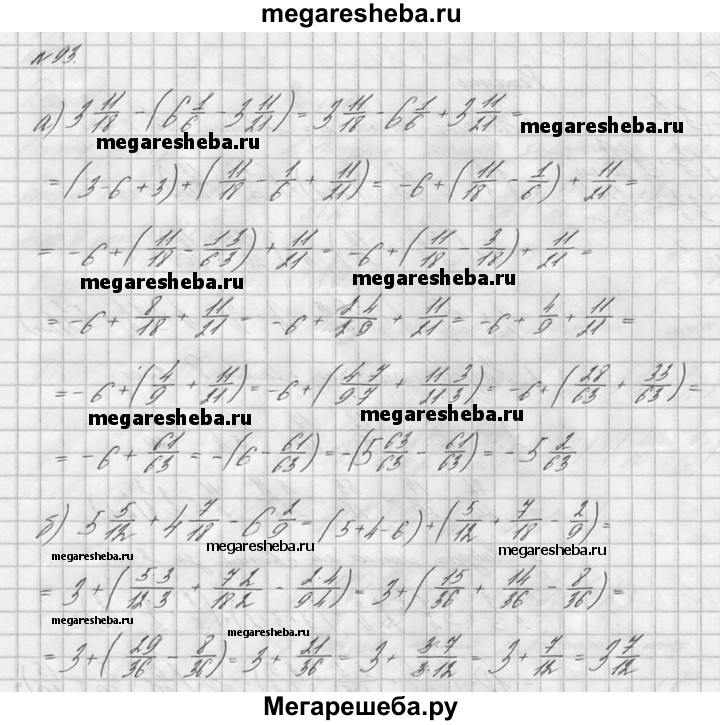 megaresheba.ru
№ 93.
а) 3 11/18 - (6 1/6 - 3 11/21) = 3 11/18 - 6 1/6 + 3 11/21 =
megaresheba.ru
megaresheba.ru
= (3-6+3) + (11/18 - 1/6 + 11/21) = -6 + (11/18 - 1/6) + 11/21 =
= -6 + (11/18 - 1·3/6·3) + 11/21 = -6 + (11/18 - 3/18) + 11/21 =
megaresheba.ru megaresheba.ru
= -6 + 8/18 + 11/21 = -6 + 2·4/2·9 + 11/21 = -6 + 4/9 + 11/21 =
= -6 + (4/9 + 11/21) = -6 + (4·7/9·7 + 11·3/21·3) = -6 + (28/63 + 33/63) =
megaresheba.ru megaresheba.ru
= -6 + 61/63 = -(6 - 61/63) = -(5 63/63 - 61/63) = -5 2/63
б) 5 5/12 + 4 7/18 - 6 2/9 = (5+4-6) + (5/12 + 7/18 - 2/9) =
megaresheba.ru megaresheba.ru megaresheba.ru
= 3 + (5·3/12·3 + 7·2/18·2 - 2·4/9·4) = 3 + (15/36 + 14/36 - 8/36) =
megaresheba.ru megaresheba.ru
= 3 + (29/36 - 8/36) = 3 + 21/36 = 3 + 3·7/3·12 = 3 + 7/12 = 3 7/12
Мегарешеба.ру